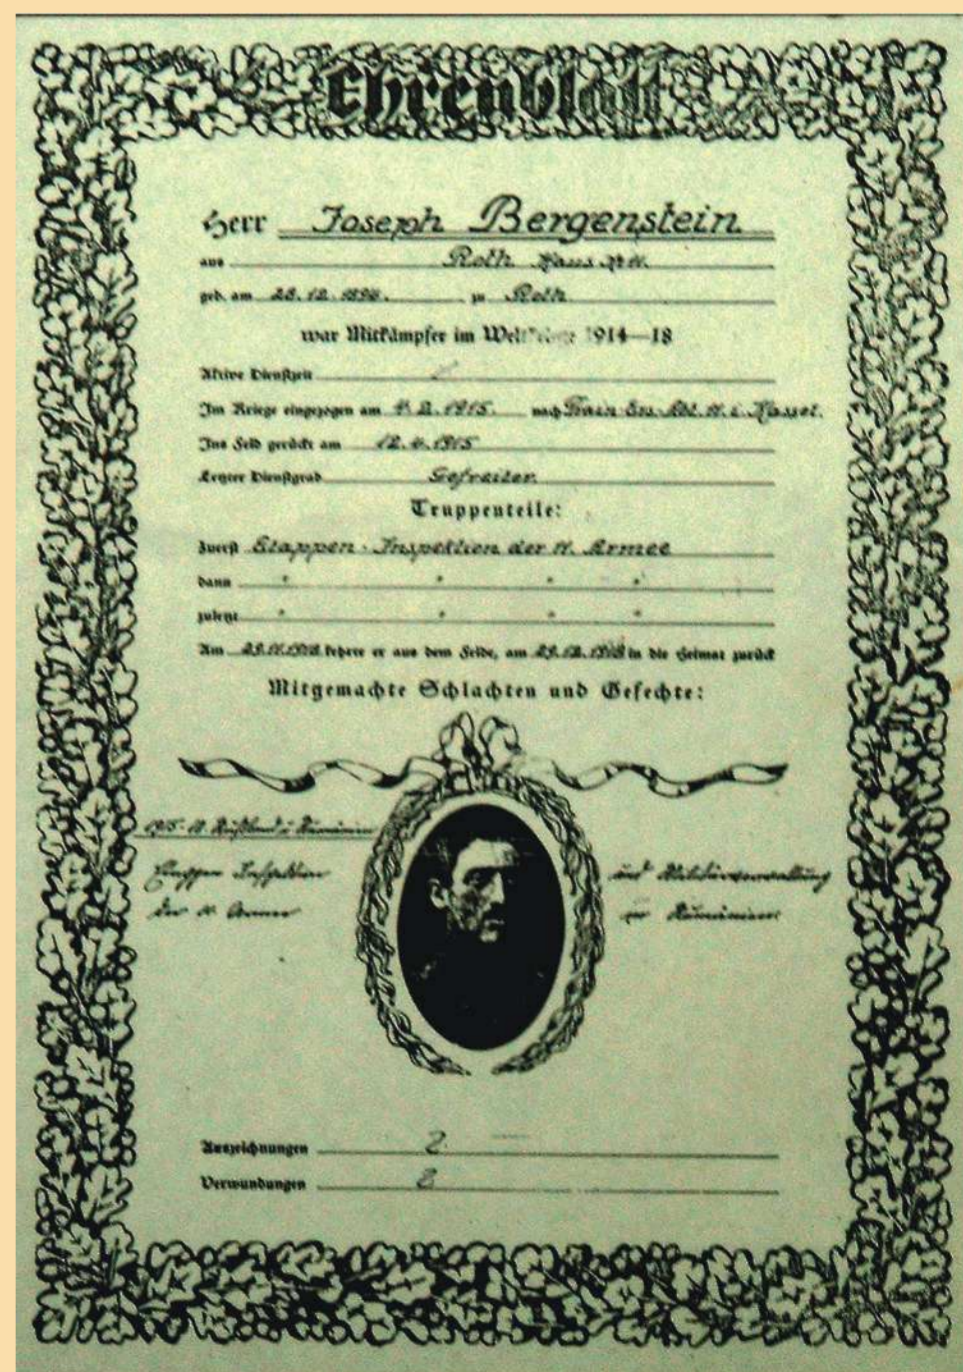 Ehrenblatt
Herr Joseph Bergenstein
aus Roth Haus № 11.
geb. am 28.12.1896. zu Roth
war Mitkämpfer im 1914—18
Aktive Dienstzeit
Im Kriege eingezogen am 4.2.1915. nach Train Ers. Abt. 11. i. Kassel.
Ins Feld gerückt am 12.4.1915
Letzter Dienstgrad Gefreiter.
Truppenteile:
Zuerst Etappen-Inspektion der 11. Armee
dann " " " "
zuletzt " " " "
Am kehrte er aus dem Felde, am in die Heimat zurück
Mitgemachte Schlachten und Gefechte:
1915-18 Rußland u. Rumänien
Etappen Inspektion und Militärverwaltung
der 11. Armee in Rumänien
Auszeichnungen
Verwundungen